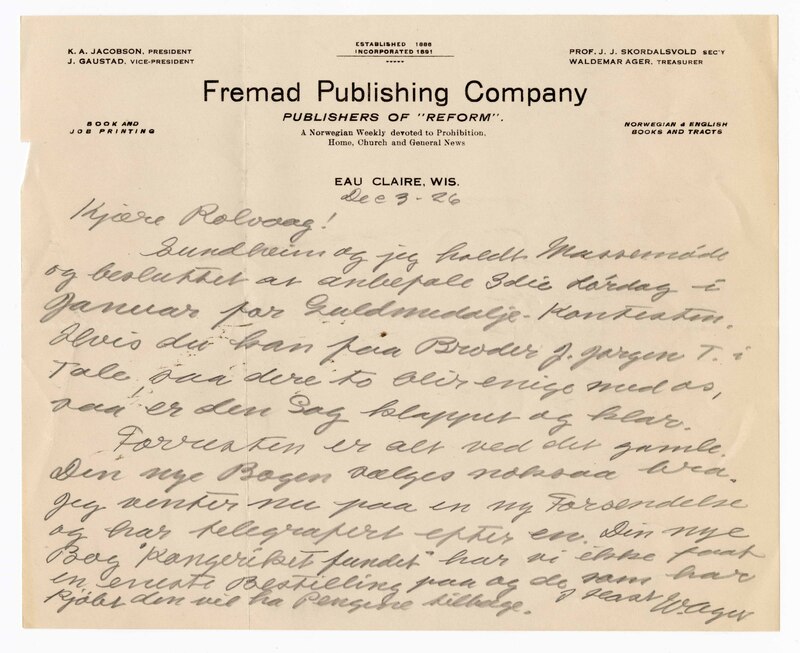 K. A. JACOBSON, PRESIDENT
J. GAUSTAD, VICE-PRESIDENT
ESTABLISHED 1886
INCORPORATED 1891
PROF. J. J. SKORDALSVOLD SEC'Y
WALDEMAR AGER, TREASURER
Fremad Publishing Company
PUBLISHERS OF "REFORM".
BOOK AND
JOB PRINTING
A Norwegian Weekly devoted to Prohibition,
Home, Church and General News
NORWEGIAN & ENGLISH
BOOKS AND TRACTS
EAU CLAIRE, WIS.
Dec 3 - 26
Kjære Rolvaag!
Sundheim og jeg holdt Massemøde
og besluttet at anbefale 3die Lørdag i
Januar for Guldmedalje-Kontesten.
Hvis du kan faa Broder J. Jørgen T. i
Tale, saa dere to blir enige med os,
saa er den Sag klappet og klar.
Forresten er alt ved det gamle.
Din nye Bogen sælges noksaa bra.
Jeg venter nu paa en ny Forsendelse
og har telegrafert efter en. Din nye
Bog "Kongeriket fundet" har vi ikke faat
en eneste Bestilling paa og de som har
kjøbt den vil ha Pengene tilbage.
I Hast W. Ager